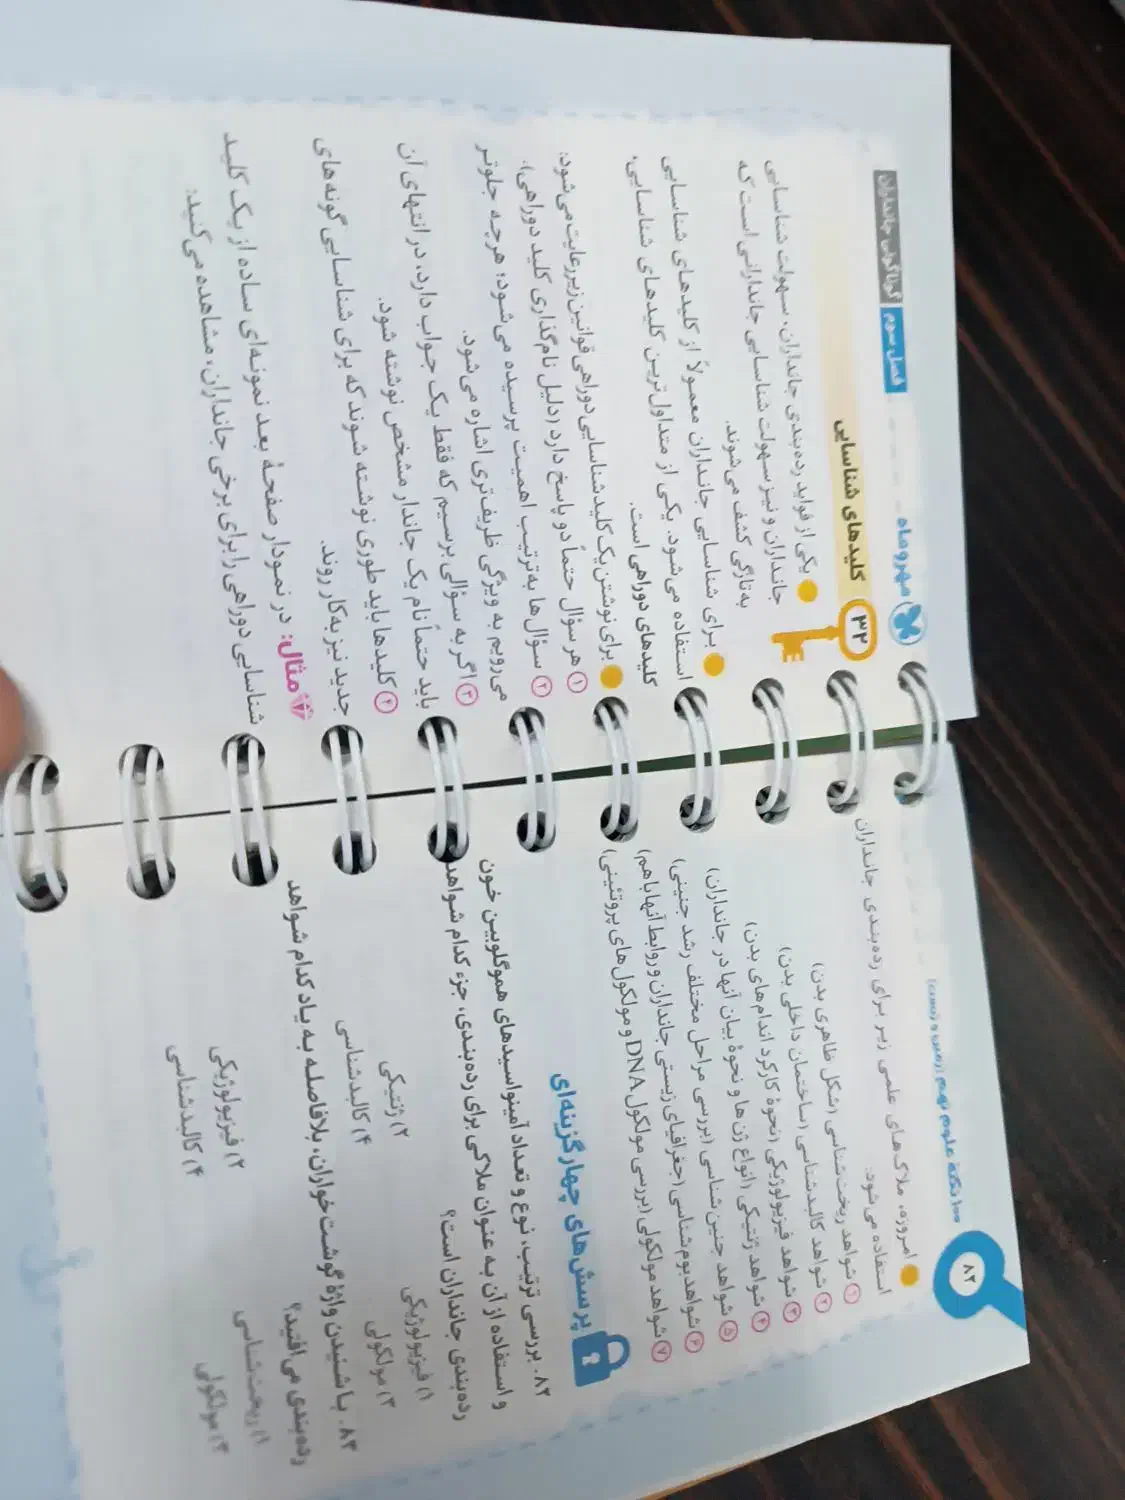 ۸۲
۱۰۰ نکته علوم نهم (زمین و زیست)
امروزه، ملاک‌های علمی زیر برای رده‌بندی جانداران
استفاده می‌شود:
۱ شواهد ریخت‌شناسی (شکل ظاهری بدن)
۲ شواهد کالبدشناسی (ساختمان داخلی بدن)
۳ شواهد فیزیولوژیکی (نحوهٔ کارکرد اندام‌های بدن)
۴ شواهد ژنتیکی (انواع ژن‌ها و نحوهٔ بیان آنها در جانداران)
۵ شواهد جنین شناسی (بررسی مراحل مختلف رشد جنینی)
۶ شواهد بوم‌شناسی (جغرافیای زیستی جانداران و روابط آنها با هم)
۷ شواهد مولکولی (بررسی مولکول DNA و مولکول‌های پروتئینی)
پرسش‌های چهارگزینه‌ای
۸۲. بررسی ترتیب، نوع و تعداد آمینواسیدهای هموگلوبین خون
و استفاده از آن به عنوان ملاکی برای رده‌بندی، جزء کدام شواهد
رده‌بندی جانداران است؟
۱) فیزیولوژیکی ۲) ژنتیکی
۳) مولکولی ۴) کالبدشناسی
۸۳. با شنیدن واژهٔ گوشت‌خواران، بلافاصله به یاد کدام شواهد
رده‌بندی می‌افتید؟
۱) ریخت‌شناسی ۲) فیزیولوژیکی
۳) مولکولی ۴) کالبدشناسی
مهروماه
فصل سوم گوناگونی جانداران
۳۲ کلیدهای شناسایی
یکی از فواید رده‌بندی جانداران، سهولت شناسایی
جانداران و نیز سهولت شناسایی جاندارانی است که
به تازگی کشف می‌شوند.
برای شناسایی جانداران معمولاً از کلیدهای شناسایی
استفاده می‌شود. یکی از متداول‌ترین کلیدهای شناسایی،
کلیدهای دوراهی است.
برای نوشتن یک کلید شناسایی دوراهی قوانین زیر رعایت می‌شود:
۱ هر سؤال حتماً دو پاسخ دارد (دلیل نام‌گذاری کلید دوراهی).
۲ سؤال‌ها به ترتیب اهمیت پرسیده می‌شود؛ هرچه جلوتر
می‌رویم به ویژگی ظریف‌تری اشاره می‌شود.
۳ اگر به سؤالی برسیم که فقط یک جواب دارد، در انتهای آن
باید حتماً نام یک جاندار مشخص نوشته شود.
۴ کلیدها باید طوری نوشته شوند که برای شناسایی گونه‌های
جدید نیز به‌کار روند.
مثال: در نمودار صفحهٔ بعد نمونه‌ای ساده از یک کلید
شناسایی دوراهی را برای برخی جانداران، مشاهده می‌کنید: